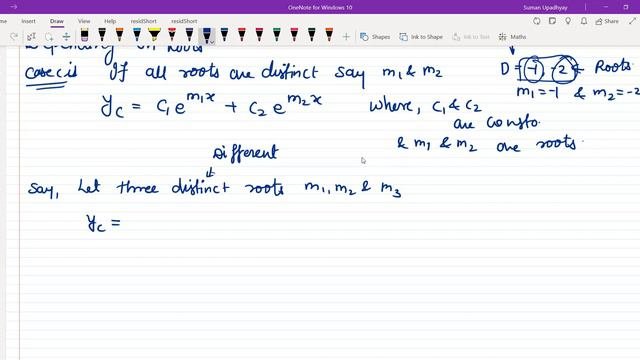 OneNote for Windows 10
Suman Upadhyay
File Home Insert Draw View Help residShort residShort
Shapes Ink to Shape Ink to Text Maths
Depending on Roots
case(i) If all roots are distinct say m₁ & m₂
D = -1, -2 ← Roots
m₁=-1 & m₂=-2
y_c = c₁e^{m₁x} + c₂e^{m₂x} where, c₁ & c₂
are consto
& m₁ & m₂ are roots.
Different
↓
Say, Let three distinct roots m₁, m₂ & m₃
y_c =